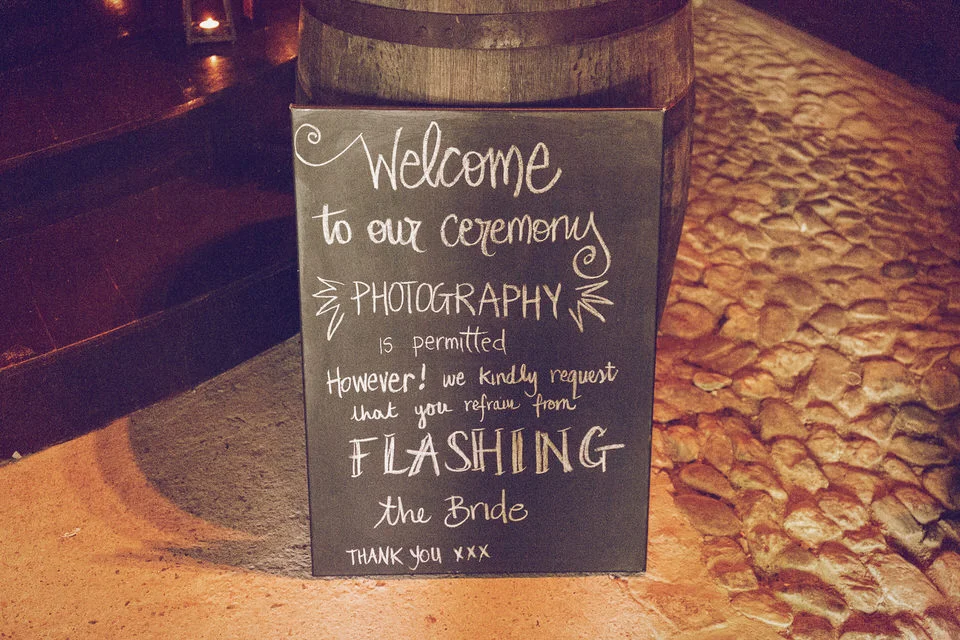 Welcome
to our ceremony
PHOTOGRAPHY
is permitted
However! we kindly request
that you refrain from
FLASHING
the Bride
THANK YOU xxx